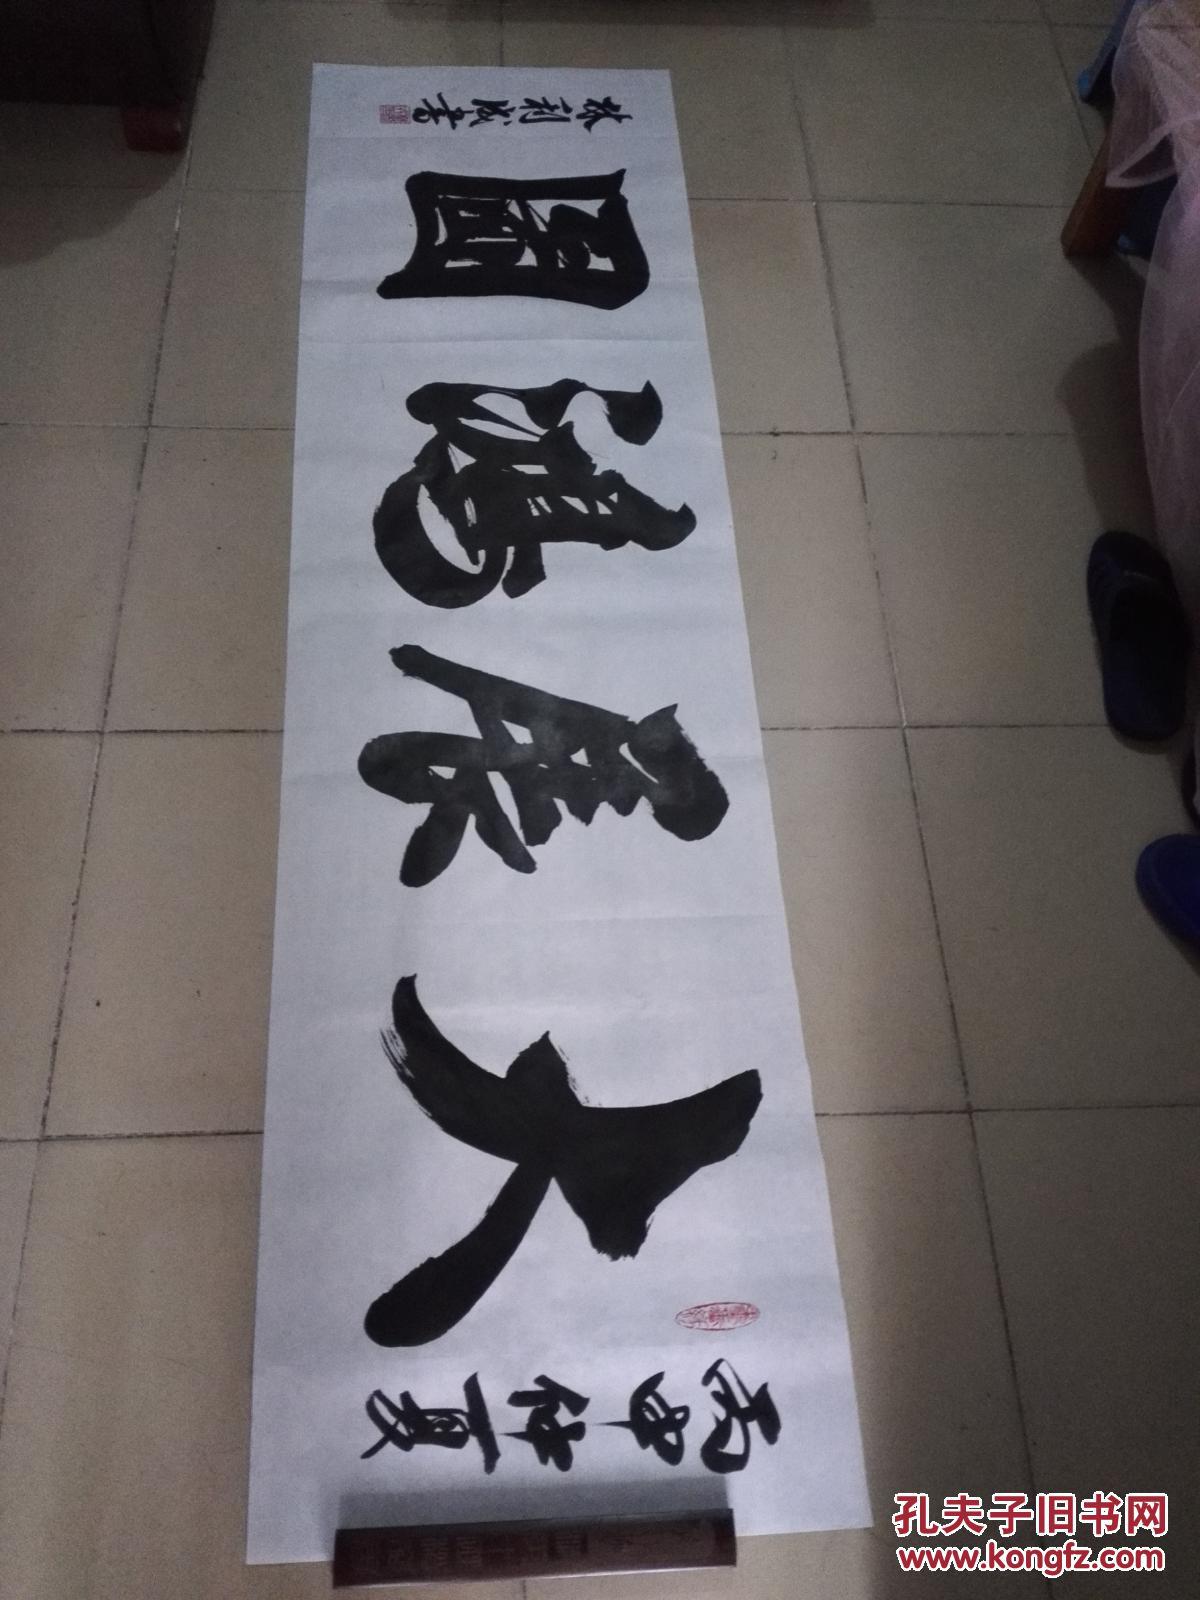 丙申仲夏
大展鴻圖
张利成書
孔夫子旧书网
www.kongfz.com